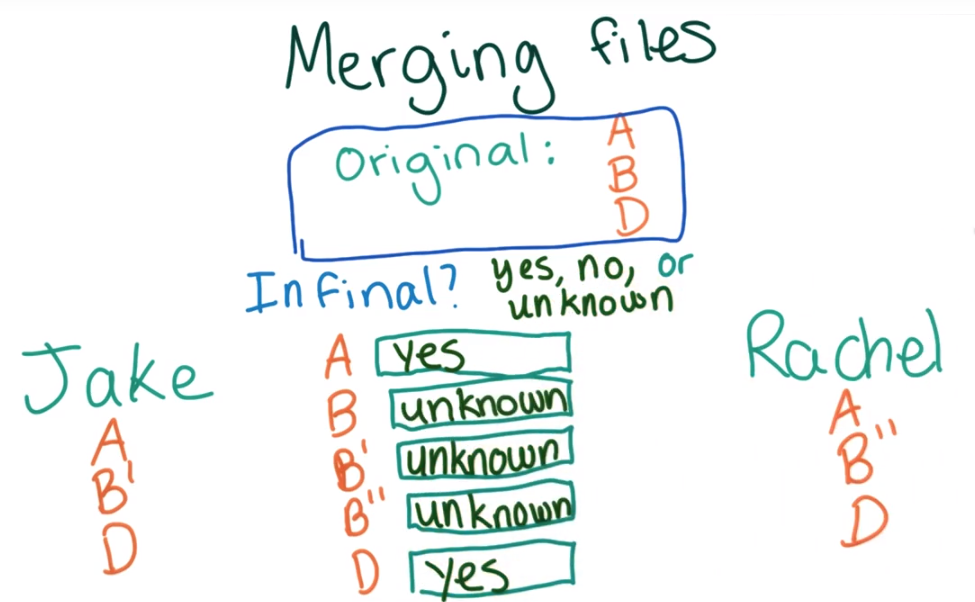 Merging files
Original: A
B
D
In final? yes, no, or
unknown
Jake
A
B'
D
A yes
B unknown
B' unknown
B'' unknown
D yes
Rachel
A
B''
D